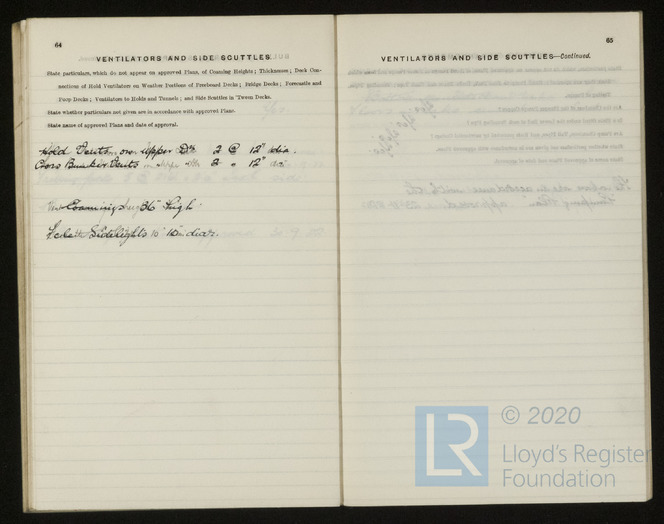 64
VENTILATORS AND SIDE SCUTTLES
State particulars, which do not appear on approved Plans, of Coaming Heights; Thicknesses; Deck Con-
nections of Hold Ventilators on Weather Portions of Freeboard Decks; Bridge Decks; Forecastle and
Poop Decks; Ventilators to Holds and Tunnels; and Side Scuttles in 'Tween Decks.
State whether particulars not given are in accordance with approved Plans.
State name of approved Plans and date of approval.
Hold Vents, on Upper Dk 2 @ 12" dia.
Cross Bunker Vents 2 " 12" dia
Coamings 36" high
Sidelights dia.
65
VENTILATORS AND SIDE SCUTTLES—Continued.
LR
© 2020
Lloyd's Register
Foundation